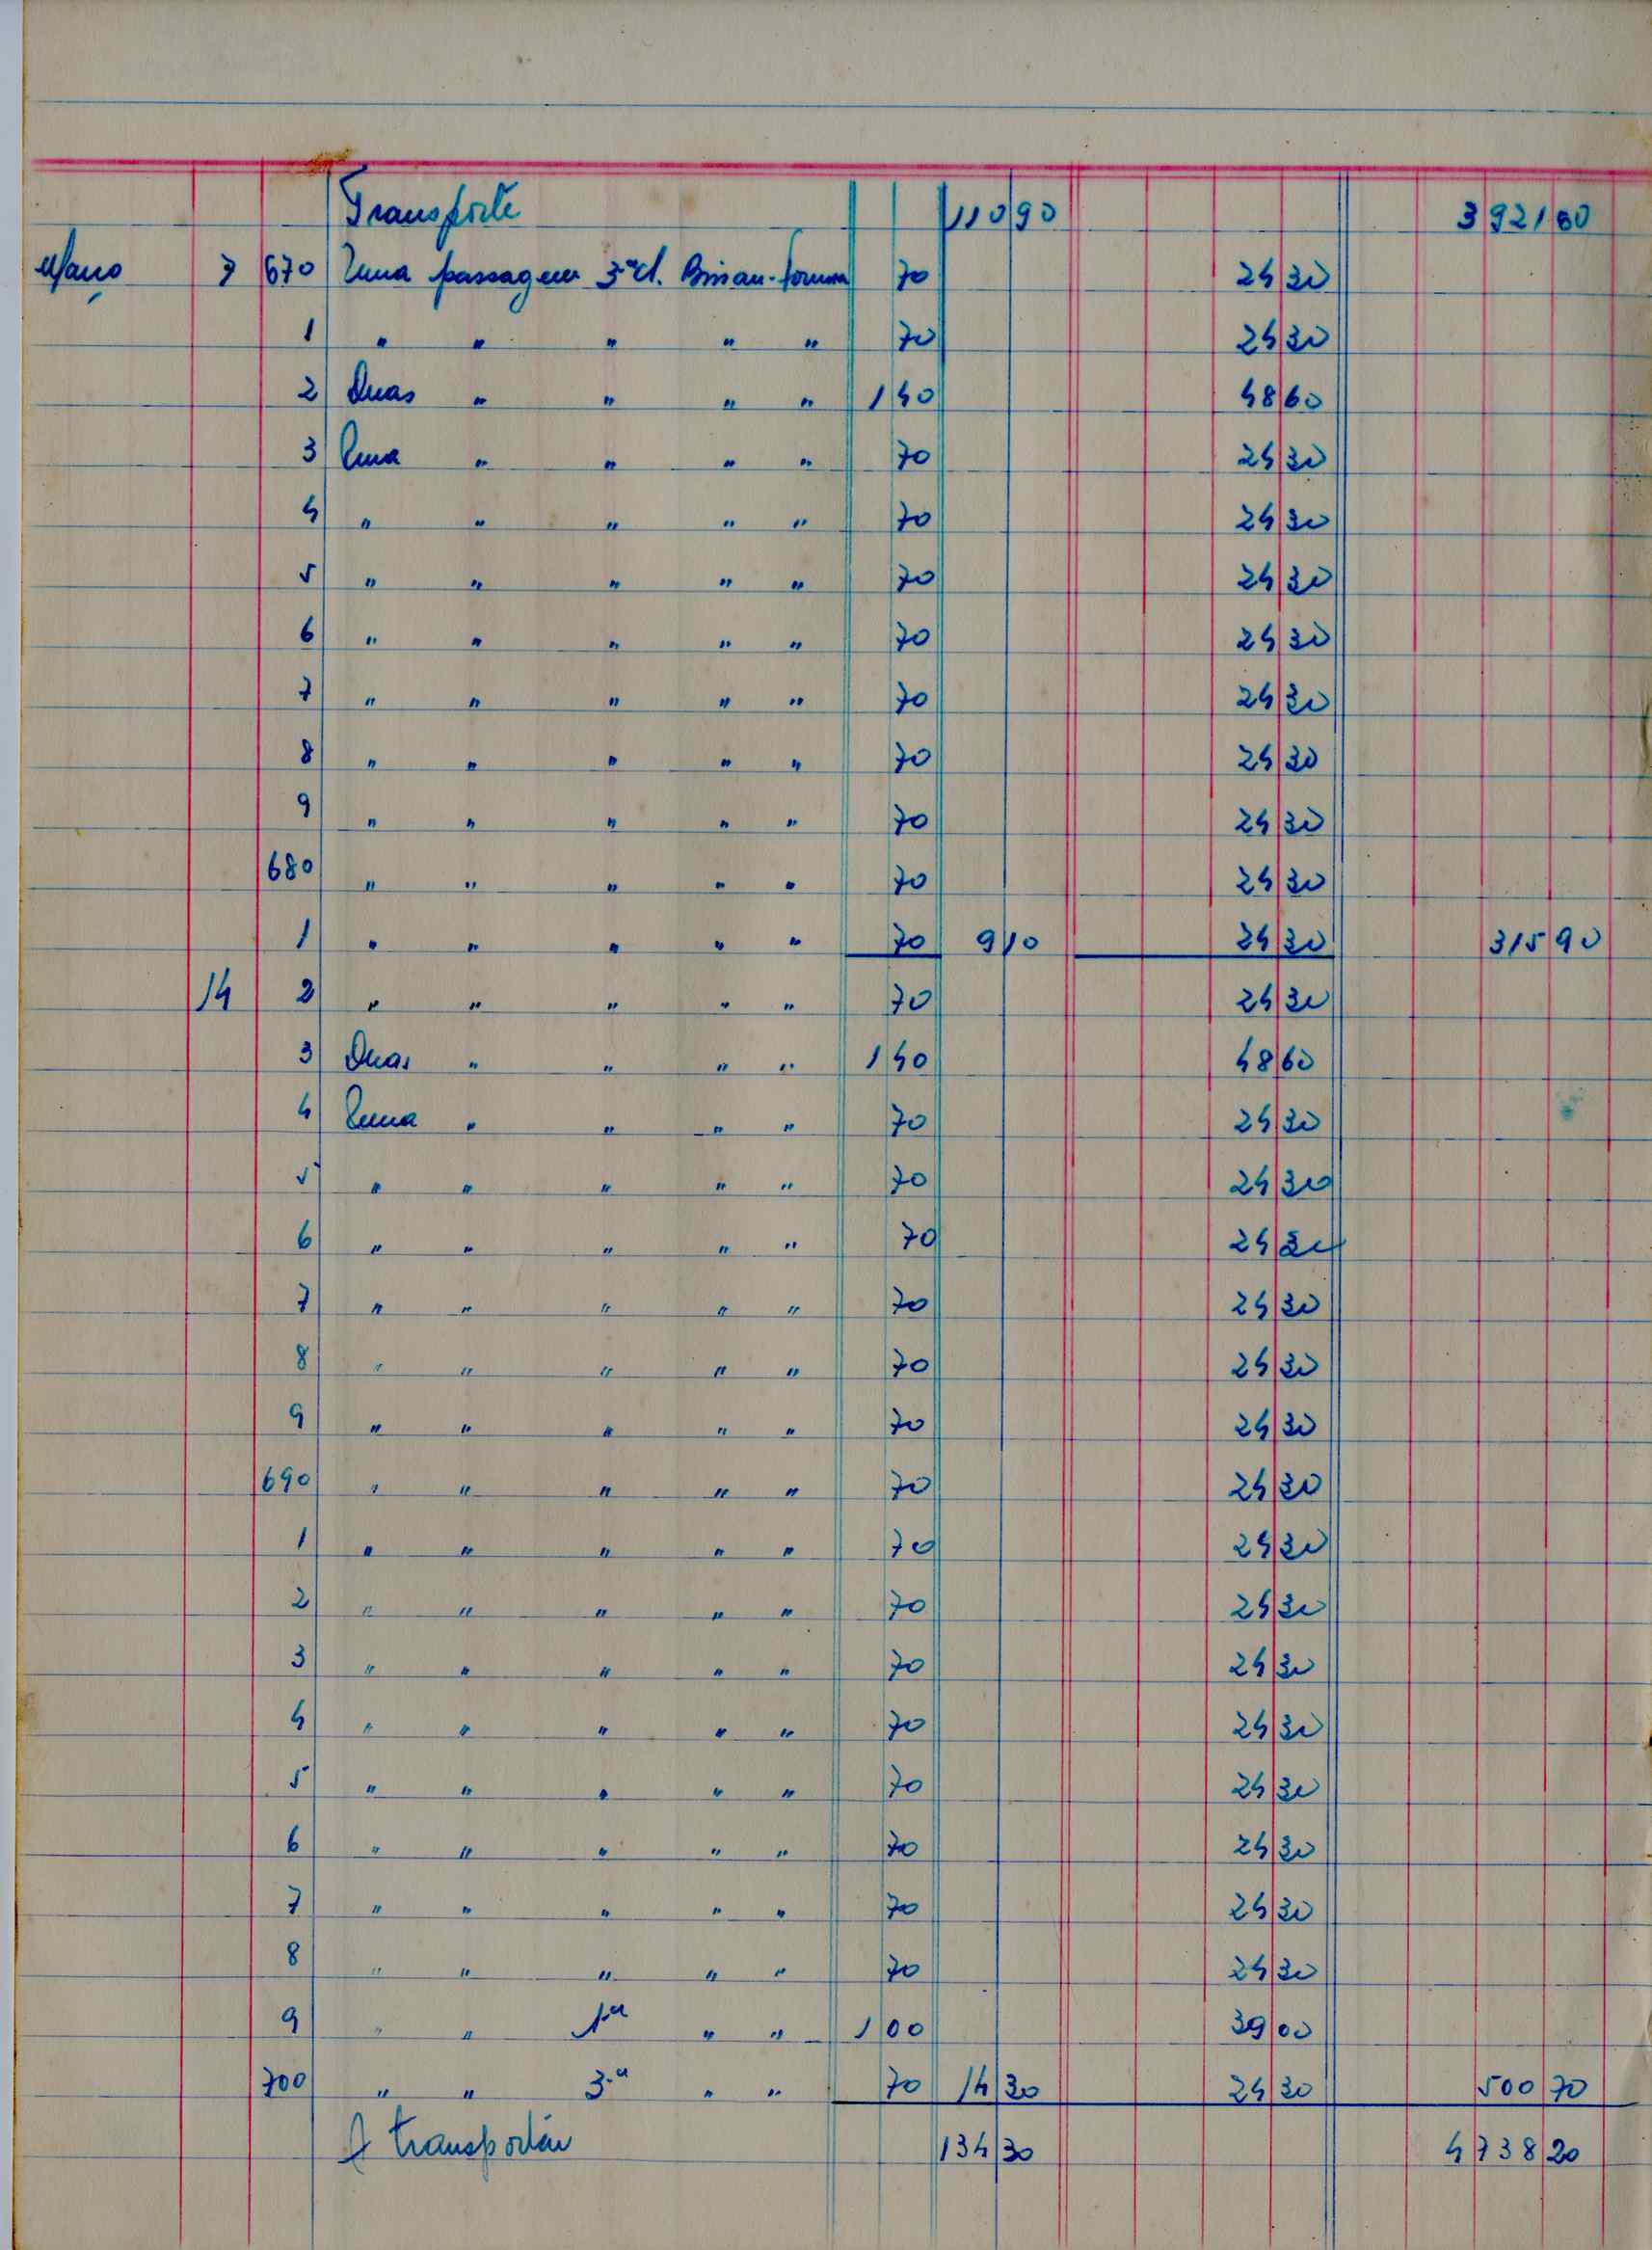 Transporte 110 90 3921 60
Março 7 670 Uma passagem 3.ª cl. Bissau- 70 24 30
1 " " " " " 70 24 30
2 Duas " " " " 1 40 48 60
3 Uma " " " " 70 24 30
4 " " " " " 70 24 30
5 " " " " " 70 24 30
6 " " " " " 70 24 30
7 " " " " " 70 24 30
8 " " " " " 70 24 30
9 " " " " " 70 24 30
680 " " " " " 70 24 30
1 " " " " " 70 9 10 24 30 315 90
14 2 " " " " " 70 24 30
3 Duas " " " " 1 40 48 60
4 Uma " " " " 70 24 30
5 " " " " " 70 24 30
6 " " " " " 70 24 30
7 " " " " " 70 24 30
8 " " " " " 70 24 30
9 " " " " " 70 24 30
690 " " " " " 70 24 30
1 " " " " " 70 24 30
2 " " " " " 70 24 30
3 " " " " " 70 24 30
4 " " " " " 70 24 30
5 " " " " " 70 24 30
6 " " " " " 70 24 30
7 " " " " " 70 24 30
8 " " " " " 70 24 30
9 " " 1ª " " 1 00 39 00
700 " " 3.ª " " 70 14 30 24 30 500 70
A transportar 134 30 4738 20